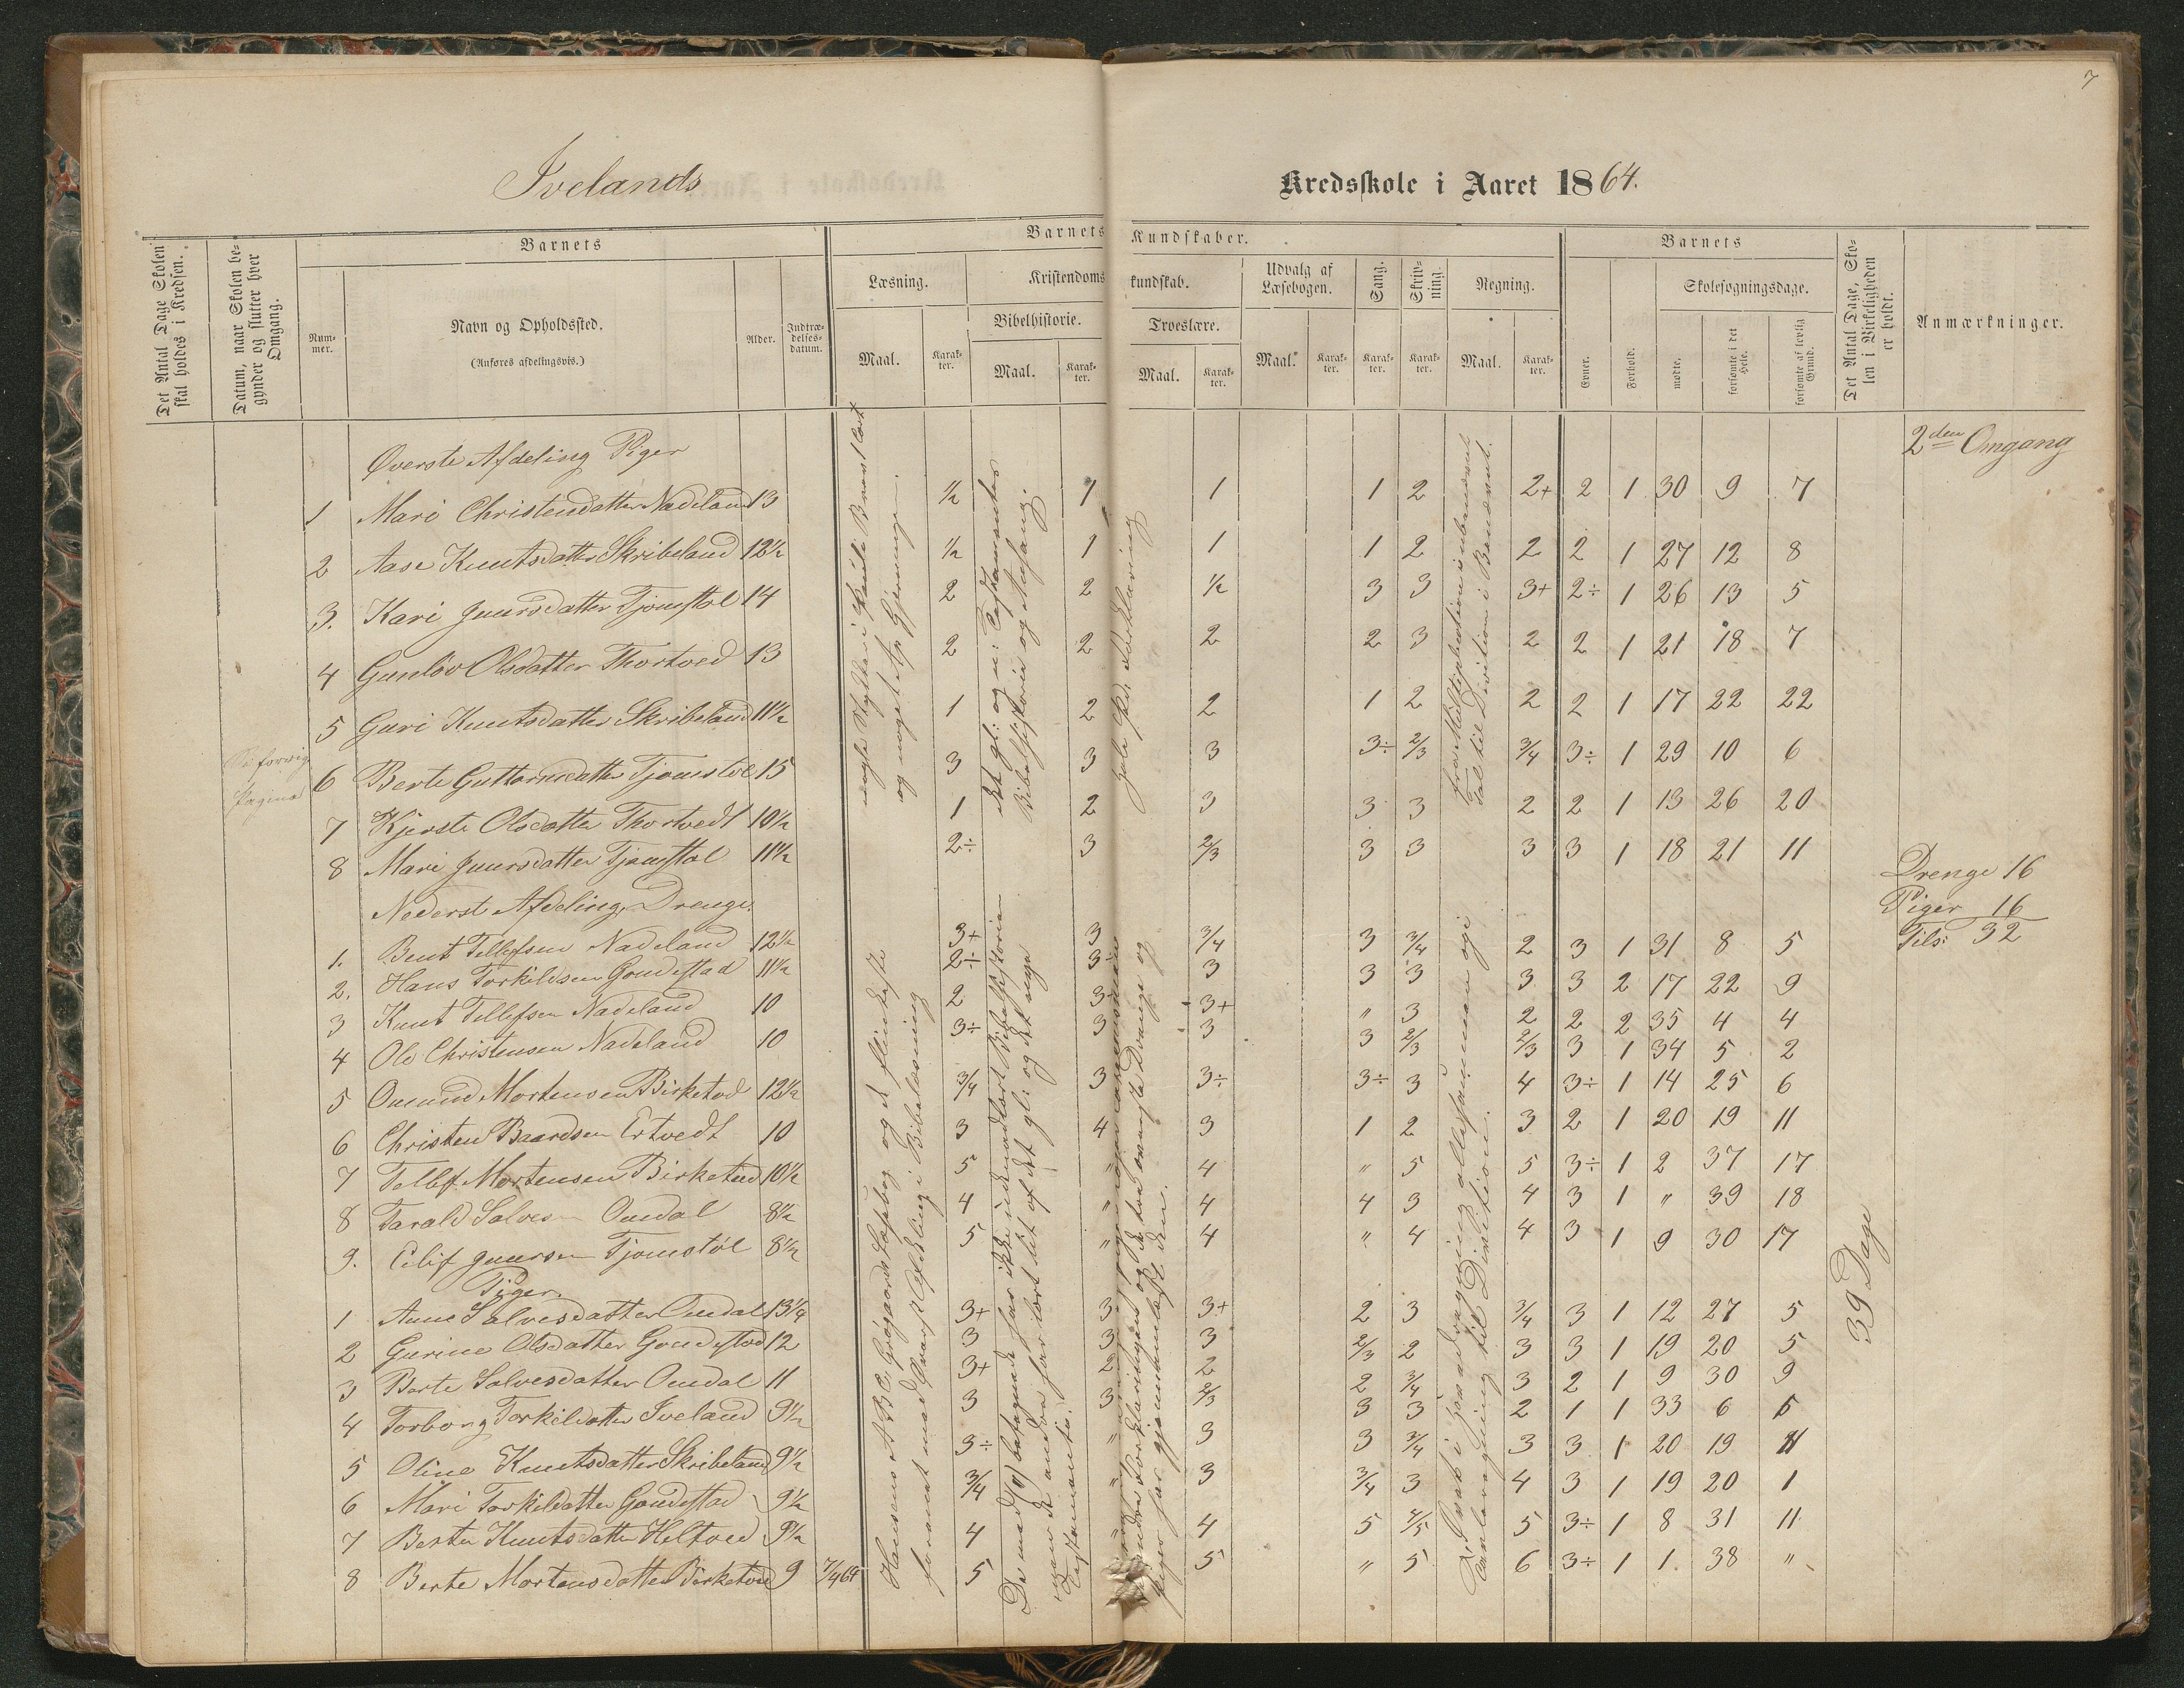 7
Ivelands
Kredsskole i Aaret 1864.
Det Antal Dage Skolen skal holdes i Kredsen.
Datum, naar Skolen begynder og slutter hver Omgang.
Barnets
Nummer.
Navn og Opholdssted.
(Anføres afdelingsvis.)
Alder.
Indtrædelsesdatum.
Barnets Kundskaber.
Læsning.
Maal.
Karakter.
Kristendomskundskab.
Bibelhistorie.
Maal.
Karakter.
Troeslære.
Maal.
Karakter.
Udvalg af Læsebogen.
Maal.
Karakter.
Sang.
Karakter.
Skrivning.
Karakter.
Regning.
Maal.
Karakter.
Barnets
Evner.
Forhold.
Skolesøgningsdage.
mødte,
forsømte i det Hele.
forsømte af lovlig Grund.
Det Antal Dage, Skolen i Virkeligheden er holdt.
Anmærkninger.
2den Omgang
Øverste Afdeling Piger
1 Mari Christensdatter Nadeland 13 ½ 1 1 1 2 2+ 2 1 30 9 7
2 Aase Knutsdatter Skribeland 12½ ½ 1 1 1 2 2 2 1 27 12 8
3. Kari Gunrsdatter Tjomstøl 14 2 2 ½ 3 3 3+ 2÷ 1 26 13 5
4 Gunlöv Olsdatter Thortved 13 2 2 2 2 3 2 2 1 21 18 7
5 Guri Knutsdatter Skribeland 11½ 1 2 2 1 2 2 2 1 17 22 22
Se forrig Pagina
6 Berte Guttormsdatter Tjomstöl 15 3 3 3 3÷ 2/3 3/4 3÷ 1 29 10 6
7 Kjerste Olsdatter Thortvedt 10½ 1 2 3 3 3 2 2 1 13 26 20
8 Mari Gunrsdatter Tjomstøl 11½ 2÷ 3 2/3 3 3 3 3 1 18 21 11
Drenge 16
Piger 16
Tils: 32
Nederste Afdeling, Drenge.
1. Bent Tellefsen Nadeland 12½ 3+ 3 3/4 3 3/4 2 3 1 31 8 5
2. Hans Torkildsen Gondestad 11½ 2÷ 3÷ 3 3 3 3 3 2 17 22 9
3 Knut Tellefsen Nadeland 10 2 3+ 3+ " 3 2 2 2 35 4 4
4 Ole Christensen Nadeland 10 3÷ 3 3 3 2/3 2/3 3 1 34 5 2
5 Omund Mortensen Birketved 12½ 3/4 3 3÷ 3÷ 3 4 3÷ 1 14 25 6
6 Christen Baardsen Ertvedt 10 3 4 3 1 2 3 2 1 20 19 11
7 Tellef Mortensen Birketved 10½ 5 " 4 " 5 5 3÷ 1 2 37 17
8 Tarald Salvesen Omdal 8½ 4 " 4 4 3 4 3 1 " 39 18
9. Eilif Gunrsen Tjomstöl 8½ 5 " 4 " 4 4 3 1 9 30 17
Piger.
1 Anne Salvesdatter Omdal 13¼ 3+ 3 3+ 2 3 3/4 3 1 12 27 5
2 Gurine Olsdatter Gondestad 12 3 3 3 2/3 2 3 3 1 19 20 5
3 Berte Salvesdatter Omdal 11 3+ 2 2 2 3/4 3 2 1 9 30 9
4 Torborg Torkildatter Iveland 9½ 3 3 2/3 3 3 2 1 1 33 6 5
5 Oline Knutsdatter Skribeland 9½ 3÷ " 3 3 3/4 3 3 1 20 19 11
6 Mari Torkildatter Gondestad 9½ 3/4 " 3 3/4 3 4 3 1 19 20 1
7 Berte Knutsdatter Heltved 9½ 4 " 4 5 4/5 5 3÷ 1 8 31 11
8 Berte Mortensdatter Birketved 9 7/4 64 5 5 " 5 6 3÷ 1 1 38 "
og noget af Gjerninger.
det gl: og n: Testamentes
Bibelhistorie og Udsang.
hele Pd. Forklaring
fra Multiplication i ubenævnt
Tal til Division i Benævnt.
Hansens A B C, Grögaards Læsebog og de flinkeste
forenet med øverst Afdeling i Bibellæsning
De med (") betegnede har ikke udenadlært Bibelhistorie
men de andre har lært lit af det gl: og det nye
Testamente.
piger har gjennemlæst den.
til Division.
39 Dage